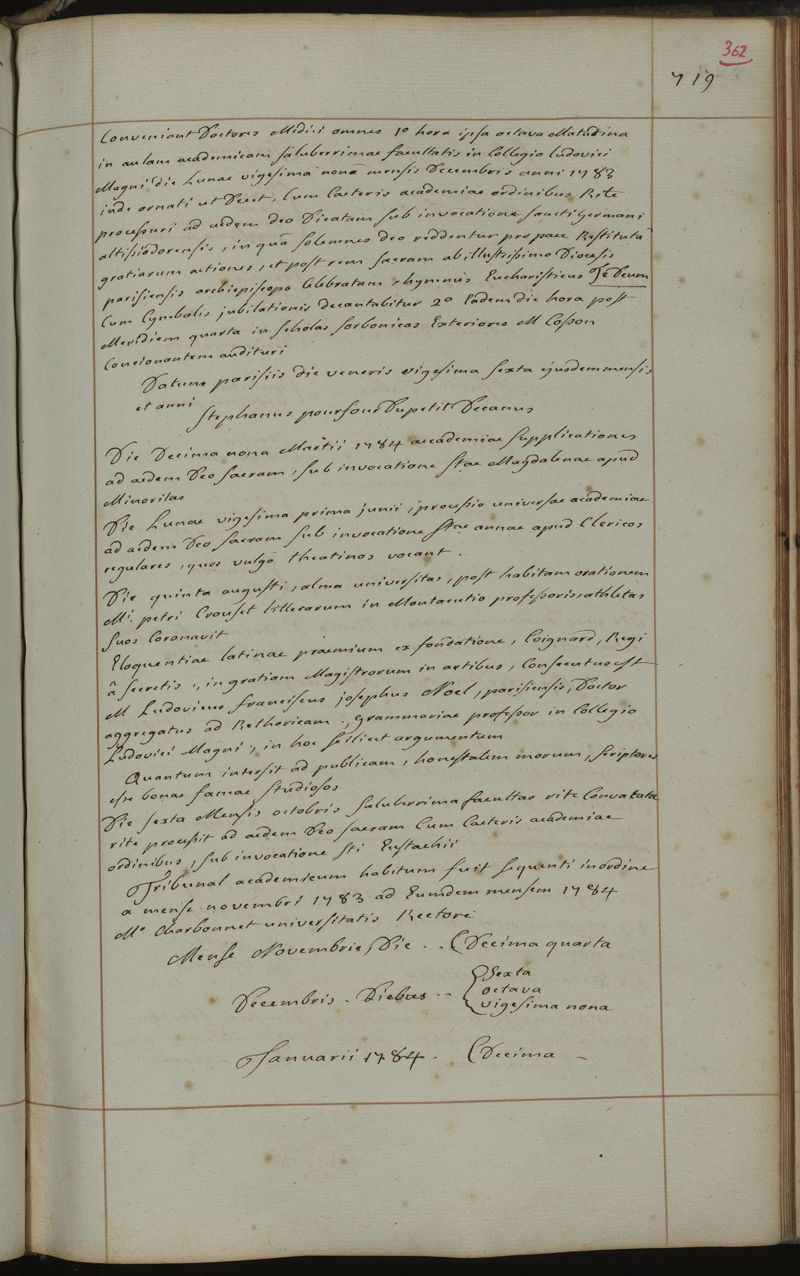 362
719
Conveniant Doctores Medici omnes 1º hora ipsa octava Matutina
in aulam academicam saluberrimae facultatis in Collegio ludovici
Magni die Lunae vigesimâ nonâ mensis Decembris anni 1783
inde ornati ut Decet, Cum Caeteris academiae ordinibus Rite
processuri ad aedem deo Dicatam sub invocatione sancti germani
altissiodorensis, in quâ solemnes deo reddentur pro pace Restitutâ
gratiarum actiones, et post rem sacram ab illustrissimo Diocesis
parisiensis archiepiscopo Celebratam rhymnus Eucharisticus Te Deum
Cum Cymbalis jubilationis decantabitur 2º Eadem die hora post
Meridiem quarta in scholas sorbonicas Exteriores M Cosson
Concionantem audituri
Datum parisiis die veneris vigesima sexta ejusdem mensis
et anni
Stephanus pourfour Dupetit Decanus
Die Decima nona Martii 1784 academiae supplicationes
ad aedem Deo sacram, sub invocatione stae Magdalenae apud
Minoritas
Die Lunae vigesima prima junii, processio universae academiae
ad aedem Deo sacram sub invocatione stae annae apud Clericos
regulares, quos vulgò theatinos vocant.
Die quinta augusti, alma universitas, post habitam orationem
Mi. petri Crouset litterarum in Montacutio professoris, athletas
suos Coronavit
Eloquentiae latinae praemium ex fondatione, Coignard, Regi
â secretis, in gratiam Magistrorum in artibus, Consecutus est
M Ludovicus franciscus josephus Noel, parisiensis, Doctor
aggregatus ad Rethoricam, grammaticae professor in Collegio
Ludovici Magni, in hoc scilicet argumentum
Quantum intersit ad publicam, honestatem morum, scriptores
esse bonae famae studiosos
Die sexta Mensis octobris saluberrima facultas rite Convocata
rite processit ad aedem Deo sacram Cum Caeteris academiae
ordinibus, sub invocatione sti Eustachii
Tribunal academicum habitum fuit sequenti in ordine
a mense novembri 1783 ad Eumdem mensem 1784
Mo Charbonnet universitatis Rectore
Mense Novembris, Die .. (Decima quarta
Decembris . Diebus .. { Sexta
octava
vigesima nona
Januarii 1784 . (Decima –